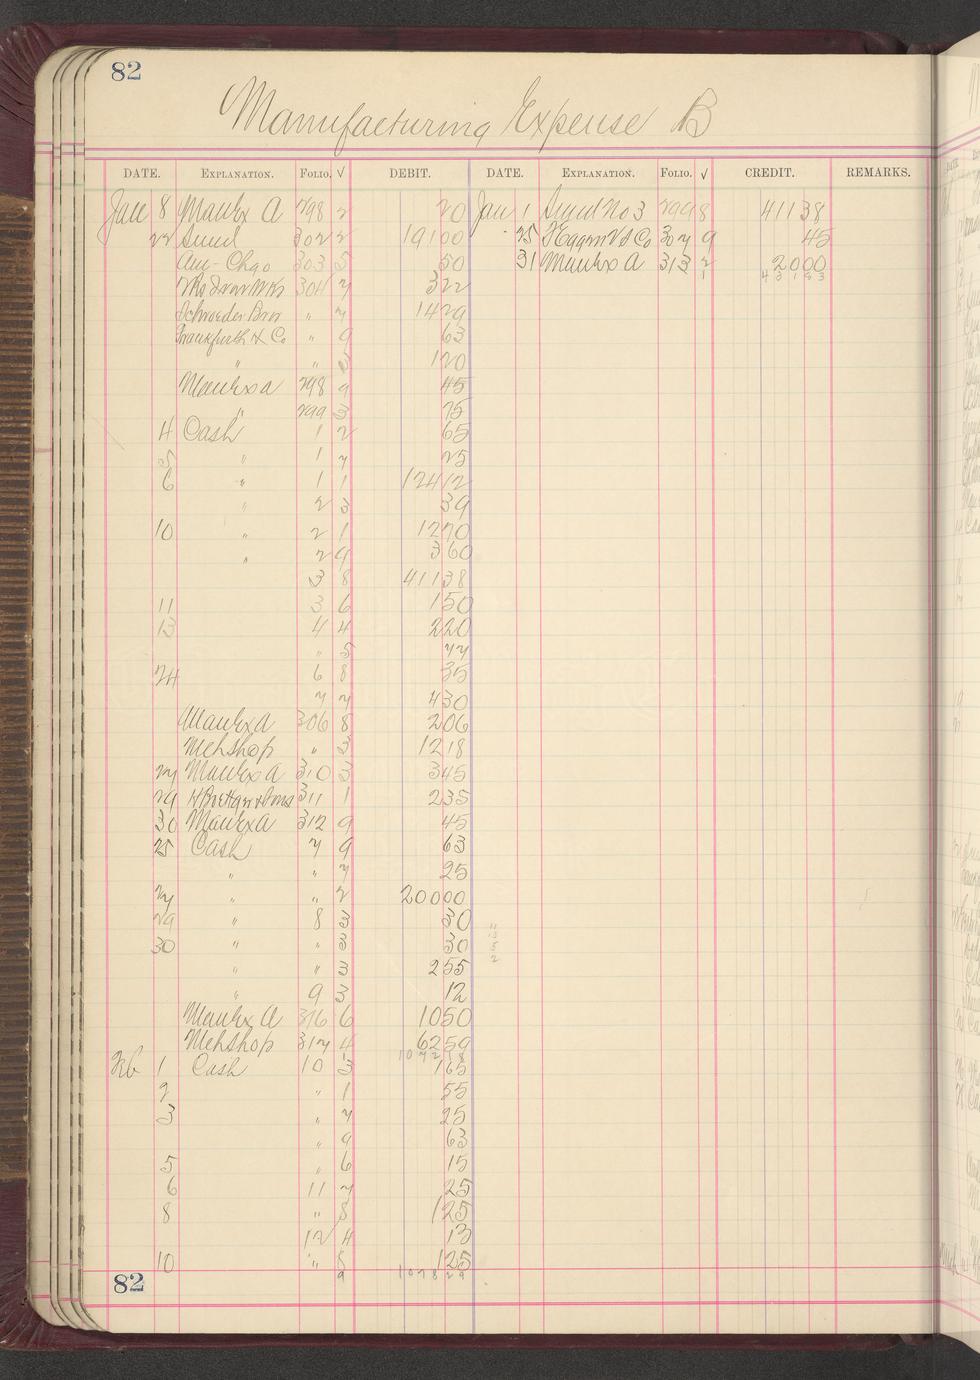 82
Manufacturing Expense B
DATE. EXPLANATION. FOLIO. √ DEBIT. DATE. EXPLANATION. FOLIO. √ CREDIT. REMARKS.
Jan 8 ManEx A 298 2 20 Jan 1 Sund No 3 299 8 411 38
22 Sund 302 2 191 00 25 & Co 307 9 45
Am - Chgo 303 5 50 31 ManEx A 313 2 20 00
304 7 3 22 1 431 83
Schroeder Bros " 7 14 29
Frankfurth H Co " 9 63
" " 5 1 20
ManEx A 298 9 45
" 299 3 75
4 Cash 1 2 65
5 " 1 7 25
6 " 1 1 124 12
" 2 3 39
10 " 2 1 12 70
" 2 9 3 60
3 8 411 38
11 3 6 1 50
13 4 4 2 20
" 5 77
24 6 8 35
7 7 4 30
ManEx A 306 8 2 06
Mchshop " 3 12 18
27 ManEx A 310 3 3 45
29 & Sons 311 1 2 35
30 ManEx A 312 9 45
25 Cash 7 9 63
" " 7 25
27 " " 2 200 00
29 " 8 3 30
30 " " 3 30
" " 3 2 55
" 9 3 12
ManEx A 316 6 10 50
Mchshop 317 4 62 59
1 1072 18
Feb 1 Cash 10 3 1 65
2 " 1 55
3 " 7 25
" 9 63
5 " 6 15
6 11 7 25
8 " 8 1 25
12 4 13
10 " 8 1 25
9 1078 29
82